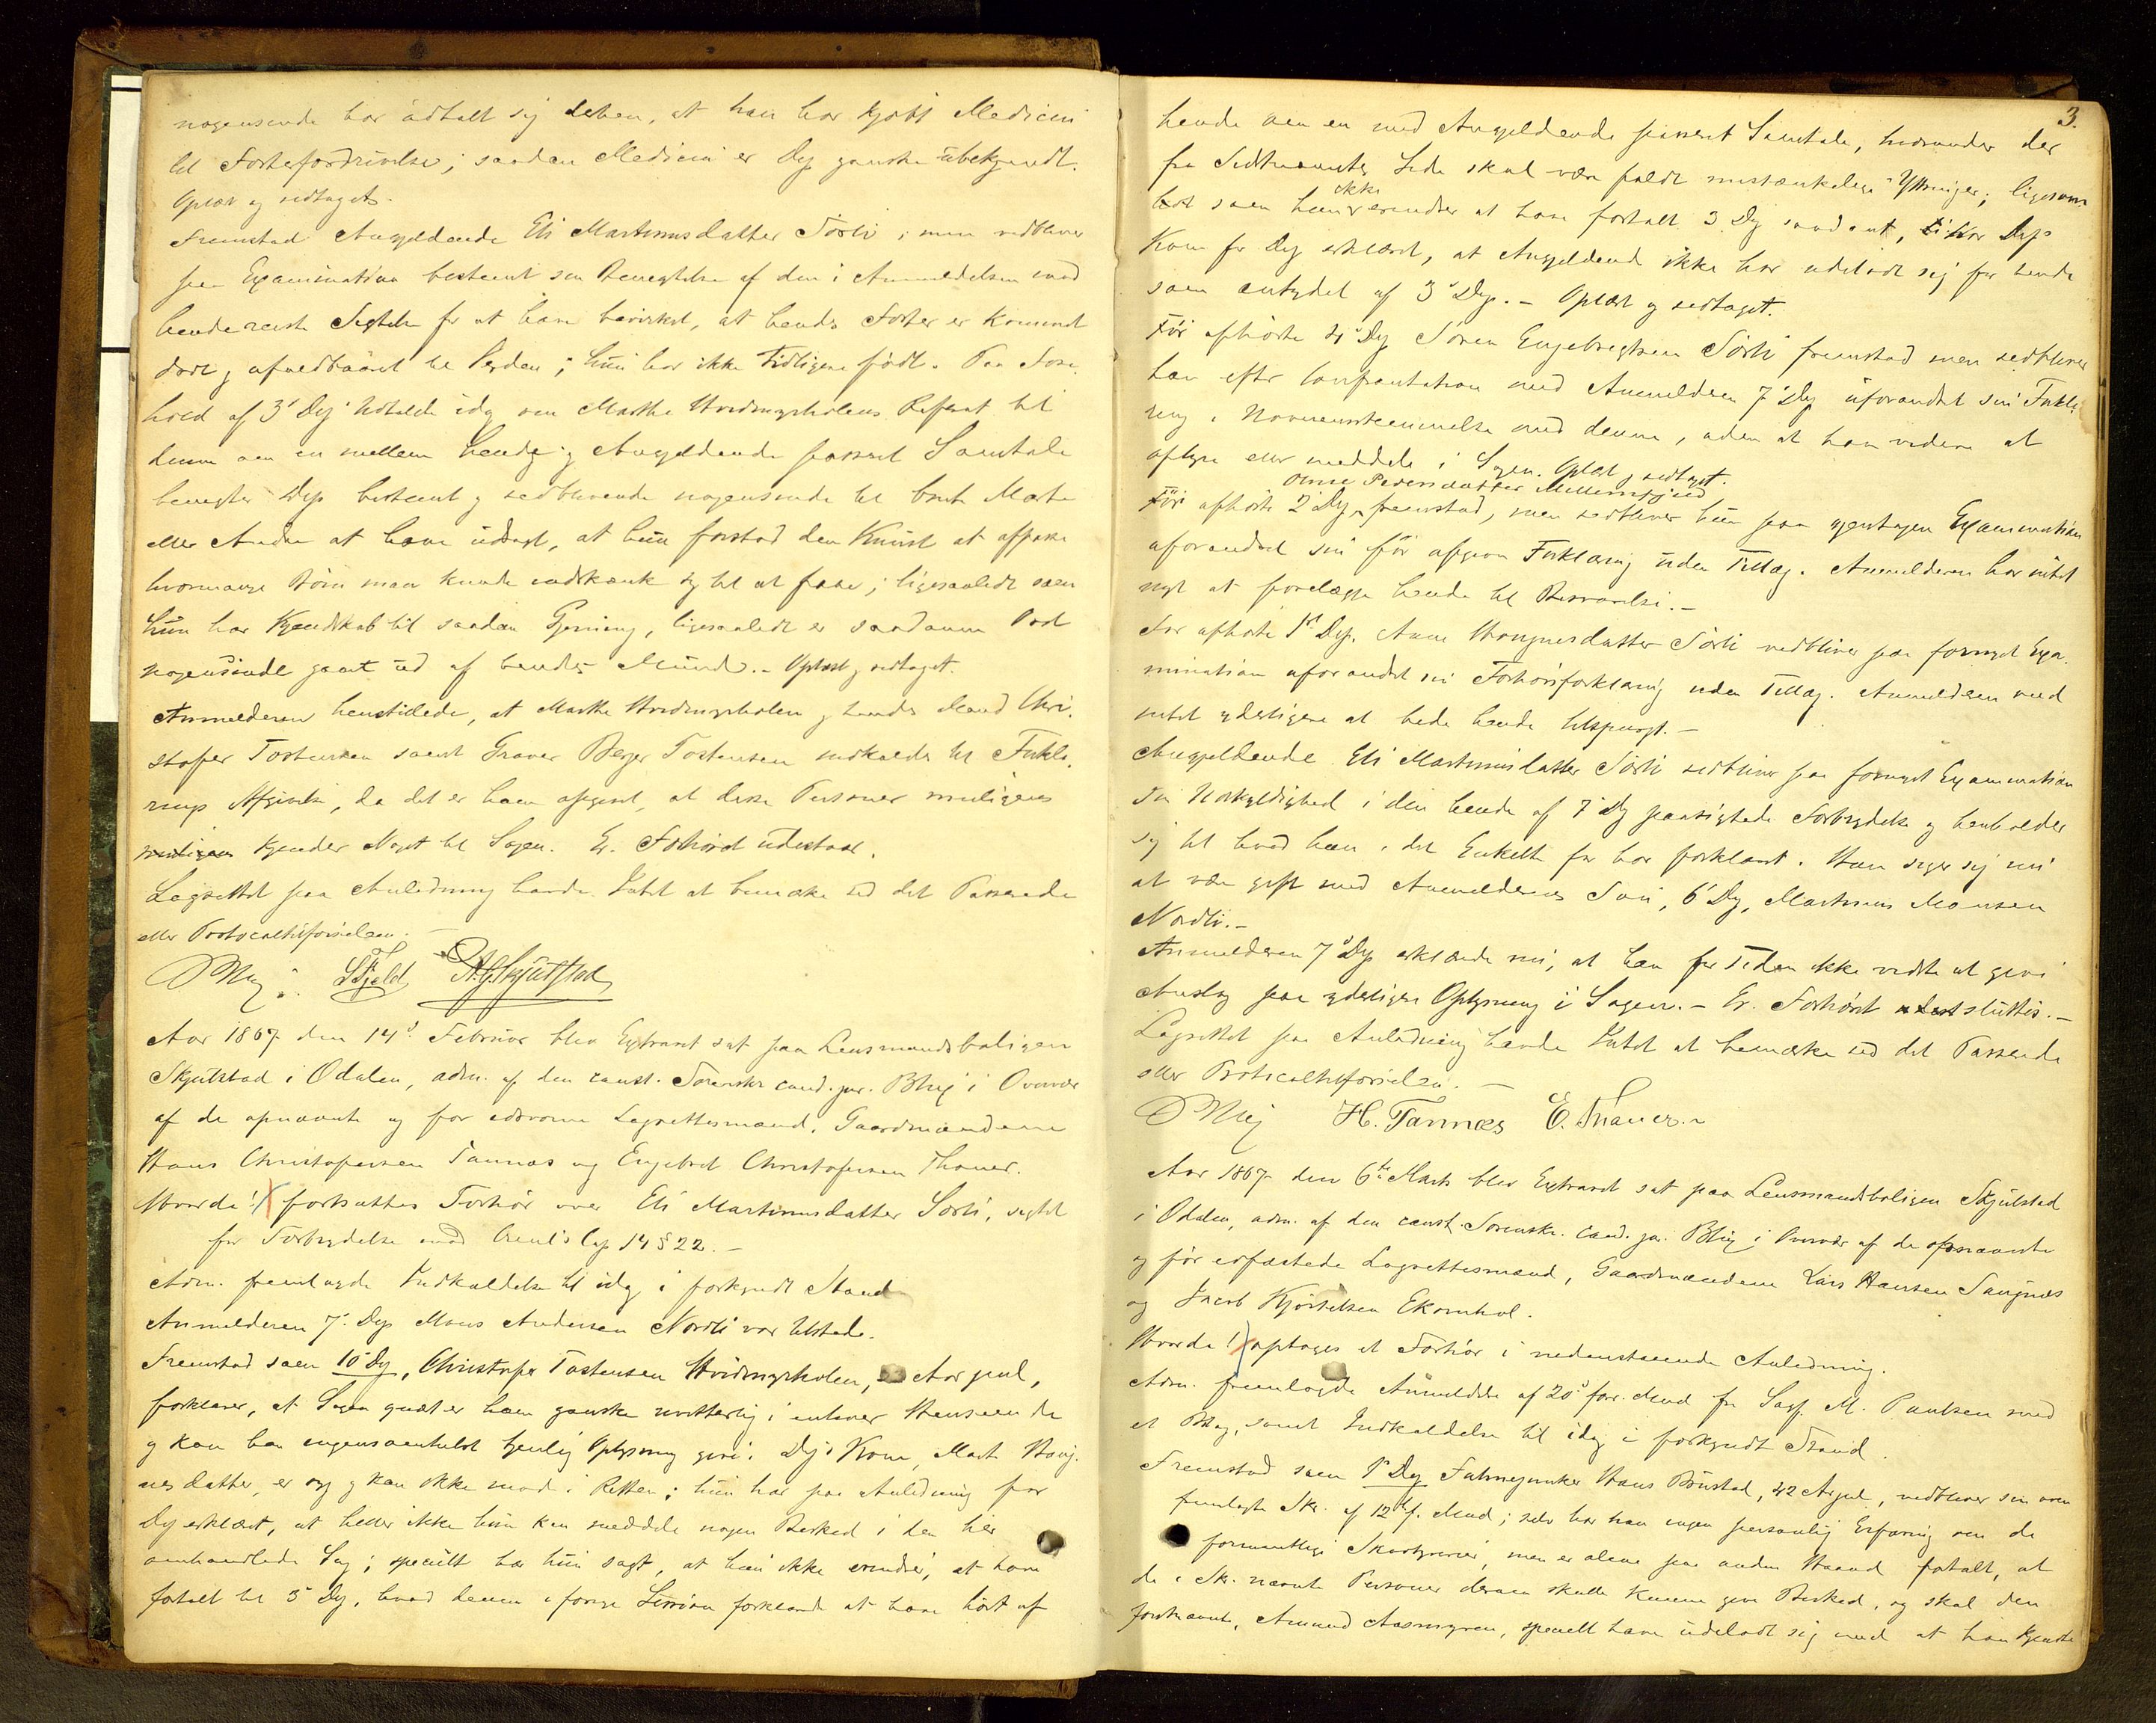 nogensinde har udtalt sig derhen, at han har kjøbt Medicin
til Fosterfordrivelse; saadan Medicin er Dep ganske ubekjendt.
Oplæst og vedtaget.
Fremstod Angjeldende Eli Martinusdatter Sörli; men vedbliver
paa Examination bestemt sin Benegtelse af den i Anmeldelsen mod
hende reiste Sigtelse for at have bevirket, at hendes Foster er kommet
dødt og ufuldbaaret til Verden; hun har ikke tidligere födt. Paa Fore-
hold af 3' Dep' Udtalelse idag om Marthe Hvidmyrholens Referat til
denne om en mellem hende og Angjeldende passeret Samtale
benegter Dep bestemt og vedblivende nogensinde til bemt Marte
eller Andre at have udsagt, at hun forstod den Kunst at afpasse
hvormange Börn man kunde indskrænke sig til at faae; ligesaalidt som
hun har Kjendskab til saadan Gjerning, ligesaalidt er saadanne Ord
nogensinde gaaet ud af hendes Mund. - Oplæst og vedtaget.
Anmelderen henstillede, at Marthe Hvidmyrholen og hendes Mand Chri-
stofer Tostensen samt Graver Berger Tostensen indkaldes til Forkla-
rings Afgivelse, da det er ham opgivet, at disse Personer muligens
muligens kjender Noget til Sagen. Er. Forhöret udestaar.
Lagrettet paa Anledning havde Intet at bemærke ved det Passerede
eller Protocoltilförselen. -
Skjeld A.G. Skjulstad
Aar 1867 den 14d Februar blev Extraret sat paa Lensmandsboligen
Skjulstad i Odalen, adm. af den const. Sorenskr. cand. jur. Blix i Overvær
af de opnævnte og for edsvorne Lagrettesmænd, Gaardmændene
Hans Christofersen Tannæs og Engebret Christofersen Thoner.
Hvorda 1) fortsattes Forhör over Eli Martinusdatter Sörli, sigtet
for Forbrydelse mod Crml's Cap 14 § 22. -
Adm. fremlagde Indkaldelse til idag i forkyndt Stand
Anmelderen 7' Dep Mons Andersen Nordli var tilstede.
Fremstod som 10' Dep, Christofer Tostensen Hvidmyrholen, Aar gml,
forklarer, at Sagen qvæst. er ham ganske uvitterlig i enhver Henseende
og kan han ingensomhelst tjenlig Oplysning give. Dep's Kone, Marte Hvoj-
nesdatter, er syg og kan ikke møde i Retten; hun har paa Anledning for
Dep erklært, at heller ikke hun kan meddele nogen Besked i den her
omhandlede Sag; specielt har hun sagt, at hun ikke erindrer, at have
fortalt til 3' Dep, hvad denne i forrige Session forklarede at have hört af
3.
hende om en med Angjeldende passeret Samtale, hvorunder der
fra Sidstnævntes Side skal være faldt mistænkelige Yttringer; ligesom
som hun ikke erindrer at have fortalt 3 Dep saadant, har Dep's
Kone for Dep erklæret, at Angjeldende ikke har udeladt sig for hende
som antydet af 3' Dep. - Oplæst og vedtaget.
För afhörte 4' Dep Sören Engebregtsen Sörli fremstod men vedbliver
han efter Confrontation med Anmelderen 7' Dep uforandret sin Forkla-
ring i Uoverensstemmelse med denne, uden at han videre at
oplyse eller meddele i Sagen. Oplæst og vedtaget.
Anne Pedersdatter Mellemsjord
För afhörte 2' Dep fremstod, men vedbliver hun paa gjentagen Examination
uforandret sin för afgivne Forklaring uden Tillæg. Anmelderen har intet
nyt at forelægge hende til Besvarelse. -
För afhörte 1ste Dep. Anne Haagnesdatter Sörli vedbliver paa fornyet Exa-
mination uforandret sin Forhörsforklaring uden Tillæg. Anmelderen ved
intet yderligere at bede hende tilspurgt. -
Angjeldende Eli Martinusdatter Sörli vedbliver paa fornyet Examination
sin Uskyldighed i den hende af 7' Dep paasigtede Forbrydelse og henholder
sig til hvad hun i det Enkelte før har forklaret. Hun siger sig nu
at være gift med Anmelderens Sön, 6' Dep, Martinus Monsen
Nordli. -
Anmelderen 7' Dep erklærede nu, at han for Tiden ikke vidste at give
Anslag paa yderligere Oplysning i Sagen. - Er. Forhöret sluttes. -
Lagrettet paa Anledning havde Intet at bemærke ved det Passerede
eller Protocoltilförselen. -
H. Tannæs E. Thoner
Aar 1867 den 6te Marts blev Extraret sat paa Lensmandsboligen Skjulstad
i Odalen, adm. af den const. Sorenskr. cand. jur. Blix i Overvær af de opnævnte
og för edfæstede Lagrettesmænd, Gaardmændene Lars Hansen Saugnæs
og Jacob Kjöstelsen Ekornhol.
Hvorda 1) optoges et Forhör i nedenstaaende Anledning.
Adm. fremlagde Anmeldelse af 20d for. Mnd fra Sagf. M. Paulsen med
et Bilag, samt Indkaldelse til idag i forkyndt Stand.
Fremstod som 1' Dep Fahnejunker Hans Brustad, 42 Ar gml, vedbliver sin oven
fremlagte Skr. af 12te f. Mnd; selv har han ingen personlig Erfaring om de
formentlige Skovtyverier, men er alene paa anden Haand fortalt, at
de i Skr. nævnte Personer derom skulle kunne give Besked, og skal den
förstnævnte, Amund Aasmyren, specielt have udeladt sig med at han kjendte